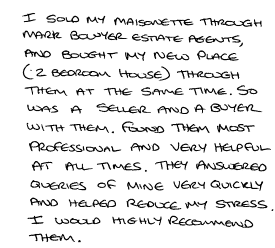 I SOLD MY MAISONETTE THROUGH
MARK BOWYER ESTATE AGENTS,
AND BOUGHT MY NEW PLACE
(·2 BEDROOM HOUSE) THROUGH
THEM AT THE SAME TIME. SO
WAS A SELLER AND A BUYER
WITH THEM. FOUND THEM MOST
PROFESSIONAL AND VERY HELPFUL
AT ALL TIMES. THEY ANSWERED
QUERIES OF MINE VERY QUICKLY
AND HELPED REDUCE MY STRESS.
I WOULD HIGHLY RECOMMEND
THEM.